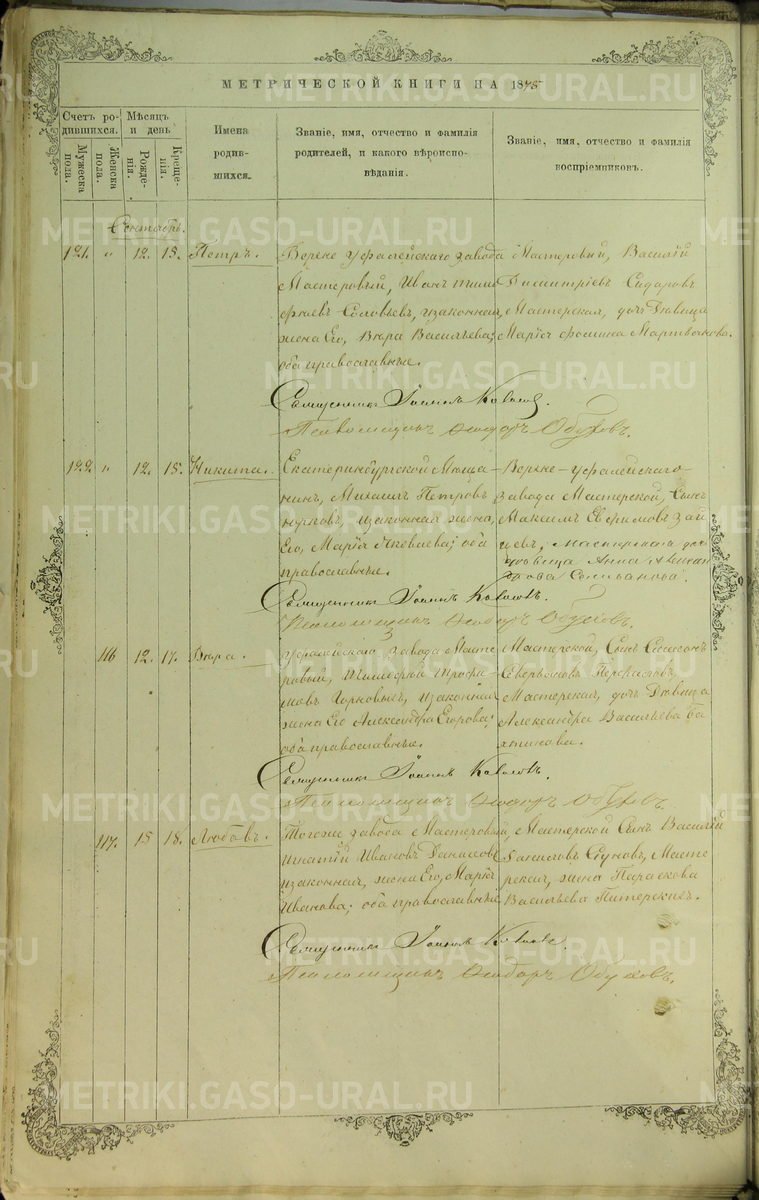 МЕТРИЧЕСКОЙ КНИГИ НА 1875
Счетъ ро-
дившихся.
Мужеска
пола.
Женска
пола.
Мѣсяцъ
и день
Рожде-
нія.
Креще-
нія.
Имена
родив-
шихся.
Званіе, имя, отчество и фамилія
родителей, и какого вѣроиспо-
вѣданія.
Званіе, имя, отчество и фамилія
воспріемниковъ.
Сентябрь.
121. " 12. 15. Петръ.
Верхне Уфалейскаго завода
Мастеровый, Иванъ Тимо
феевъ Соловьевъ, изаконная
жена Его, Вѣра Васильева;
оба православные.
Мастеровый, Василій
Димитріевъ Сидаровъ
Мастерская, дочь Дѣвица
Марія Фомина Мартьянова.
Священникъ Іоаннъ
Псаломщикъ Ѳеодоръ Обуховъ.
122 " 12. 15. Никита.
Екатеринбургской Мѣща-
нинъ, Михаилъ Петровъ
изаконная жена
Его, Марія Яковлева; оба
православные.
Верхне-Уфалейскаго
завода Мастерской, Сынъ
Максимъ Евфимовъ Зай
цевъ, Мастерская доч
Дѣвица Анна
Священникъ Іоаннъ
Псаломщикъ Ѳеодоръ Обуховъ.
116 12. 17. Вѣра.
Уфалейскаго завода Масте
ровый, Тимофей Трофи
мовъ Горновыхъ, изаконная
жена Его Александра Егорова;
оба православные.
Мастерской, Сынъ
Мастерская, дочь Дѣвица
Александра Васильева
Священникъ Іоаннъ
Псаломщикъ Ѳеодоръ Обуховъ.
117. 15 18. Любовь.
Тогоже завода Мастеровый
Игнатій Ивановъ
изаконная, жена Его, Марія
Иванова; оба православные
Мастерской Сынъ Василій
Масте
рская, жена Параскова
Васильева Питерскихъ.
Священникъ Іоаннъ
Псаломщикъ Ѳеодоръ Обуховъ.
METRIKI.GASO-URAL.RU